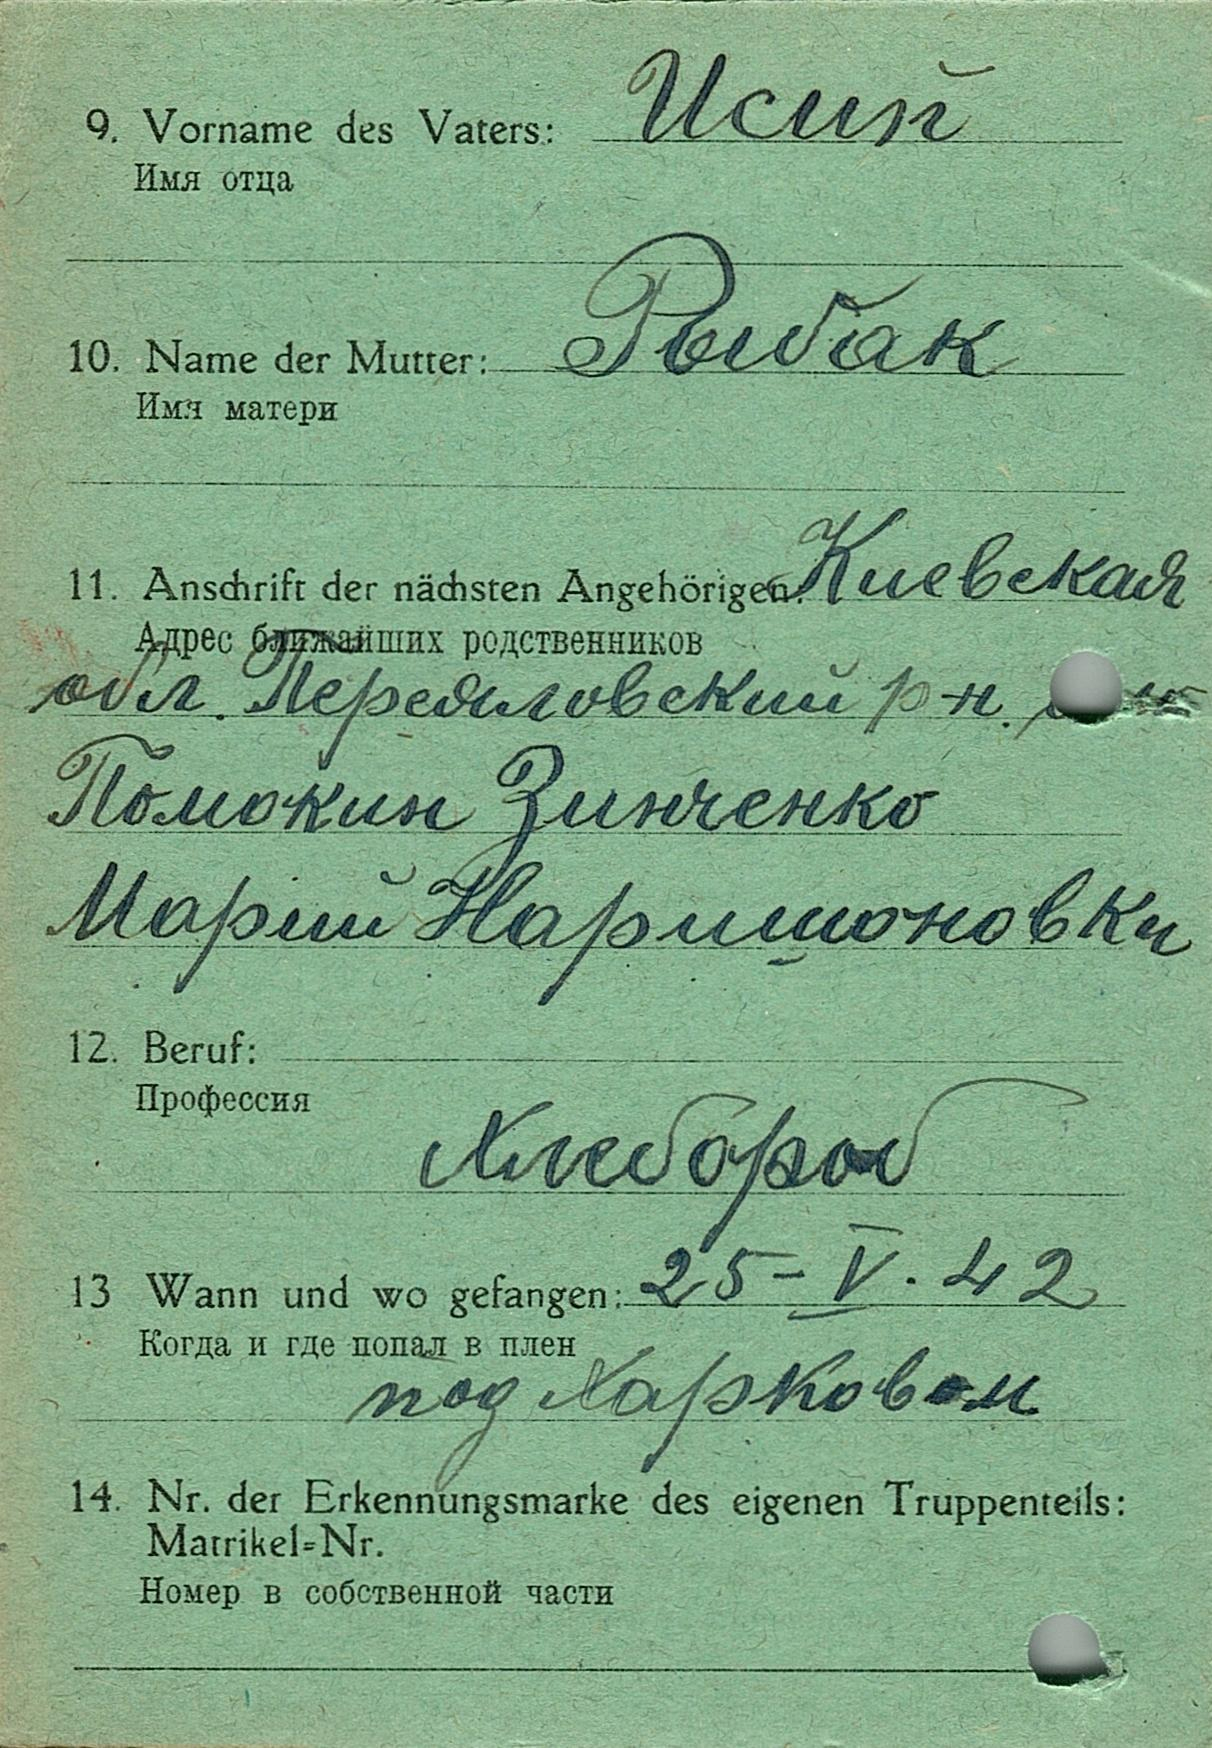 9. Vorname des Vaters: Исий
Имя отца
10. Name der Mutter: Рыбак
Имя матери
11. Anschrift der nächsten Angehörigen: Киевская
Адрес ближайших родственников
обл. Переяловский р-н.
Помокин Зинченко
Марий Наришоновки
12. Beruf:
Профессия
Хлебороб
13 Wann und wo gefangen: 25-V.42
Когда и где попал в плен
под Харковом
14. Nr. der Erkennungsmarke des eigenen Truppenteils:
Matrikel=Nr.
Номер в собственной части